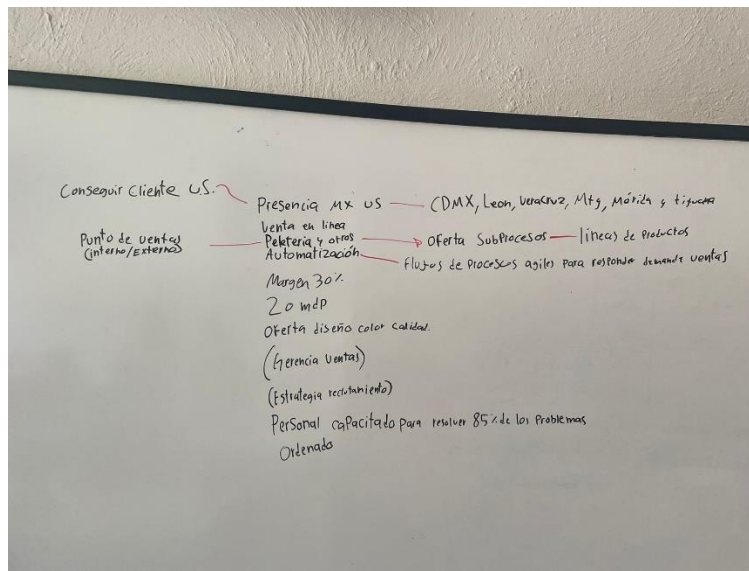 Conseguir Cliente U.S.
Presencia MX US — CDMX, Leon, Veracruz, Mty, Mérida y tijuana
Venta en linea
Punto de ventas (interno/Externo) — Peletería y otros → Oferta SubProcesos — lineas de Productos
Automatización — Flujos de Procesos agiles para responder demanda ventas
Margen 30%
20 mdp
Oferta diseño color calidad.
(Gerencia Ventas)
(Estrategia reclutamiento)
Personal capacitado para resolver 85% de los Problemas
Ordenado